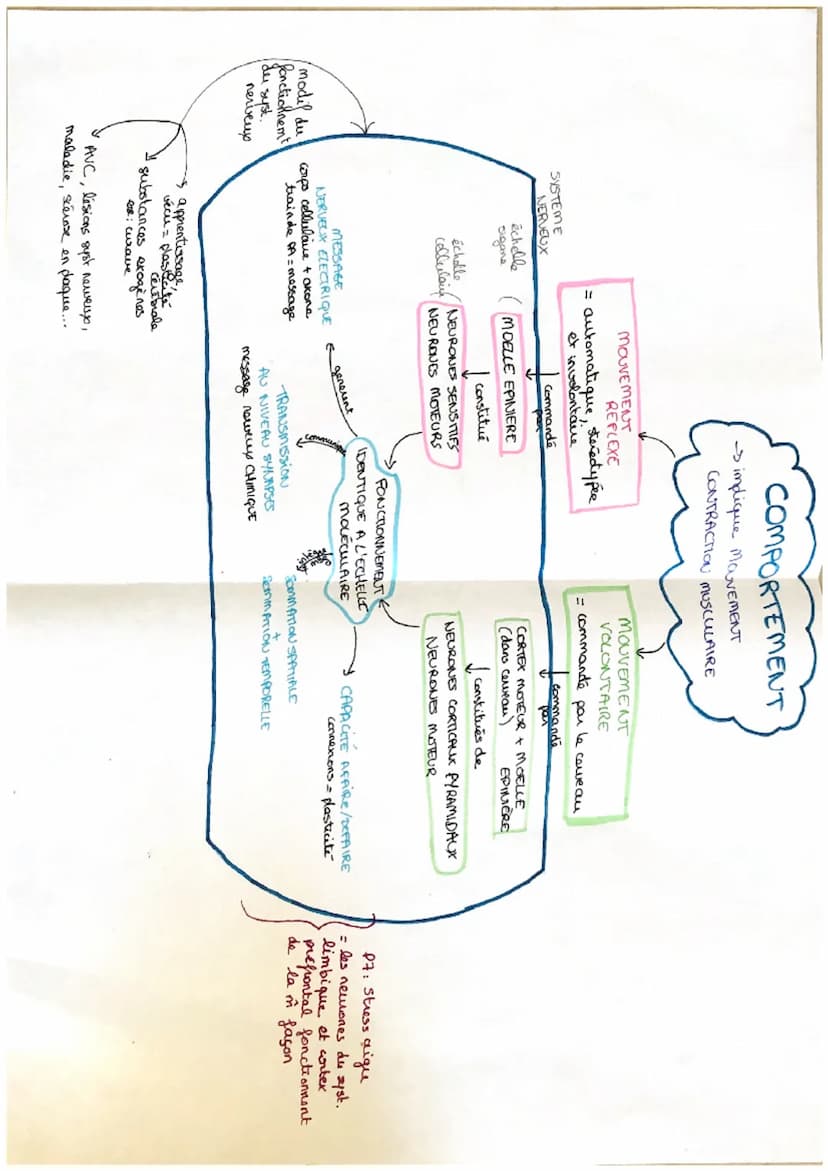 COMPORTEMENT
→ implique MOUVEMENT
CONTRACTION MUSCULAIRE
MOUVEMENT
REFLEXE
= automatique, stéréotypée
et involontaire
MOUVEMENT
VOLONTAIRE
= commandé par le cerveau
SYSTEME
NERVEUX
commandé
par
commandé
par
échelle
organe
MOELLE EPINIERE
CORTEX MOTEUR + MOELLE
(dans cerveau) EPINIÈRE
constitué
constitués de
échelle
cellulaire
NEURONES SENSITIFS
NEURONES MOTEURS
NEURONES CORTICAUX PYRAMIDAUX
NEURONES MOTEUR
FONCTIONNEMENT
IDENTIQUE A L'ECHELLE
MOLÉCULAIRE
génèrent
MESSAGE
NERVEUX ELECTRIQUE
corps cellulaire + axone
train de PA = message
communique
TRANSMISSION
AU NIVEAU SYNAPSES
message nerveux CHIMIQUE
SOMMATION SPATIALE
+
SOMMATION TEMPORELLE
CAPACITÉ A FAIRE/DEFAIRE
connexions = plasticité
modif du
fonctionnemt
du syst.
nerveux
→ apprentissage,
vécu = plasticité
cérébrale
→ substances exogènes
ex: curare
AVC, lésions syst nerveux,
maladie, sclérose en plaque...
P7: stress aigu
= les neurones du syst.
limbique et cortex
préfrontal fonctionnent
de la m̂ façon